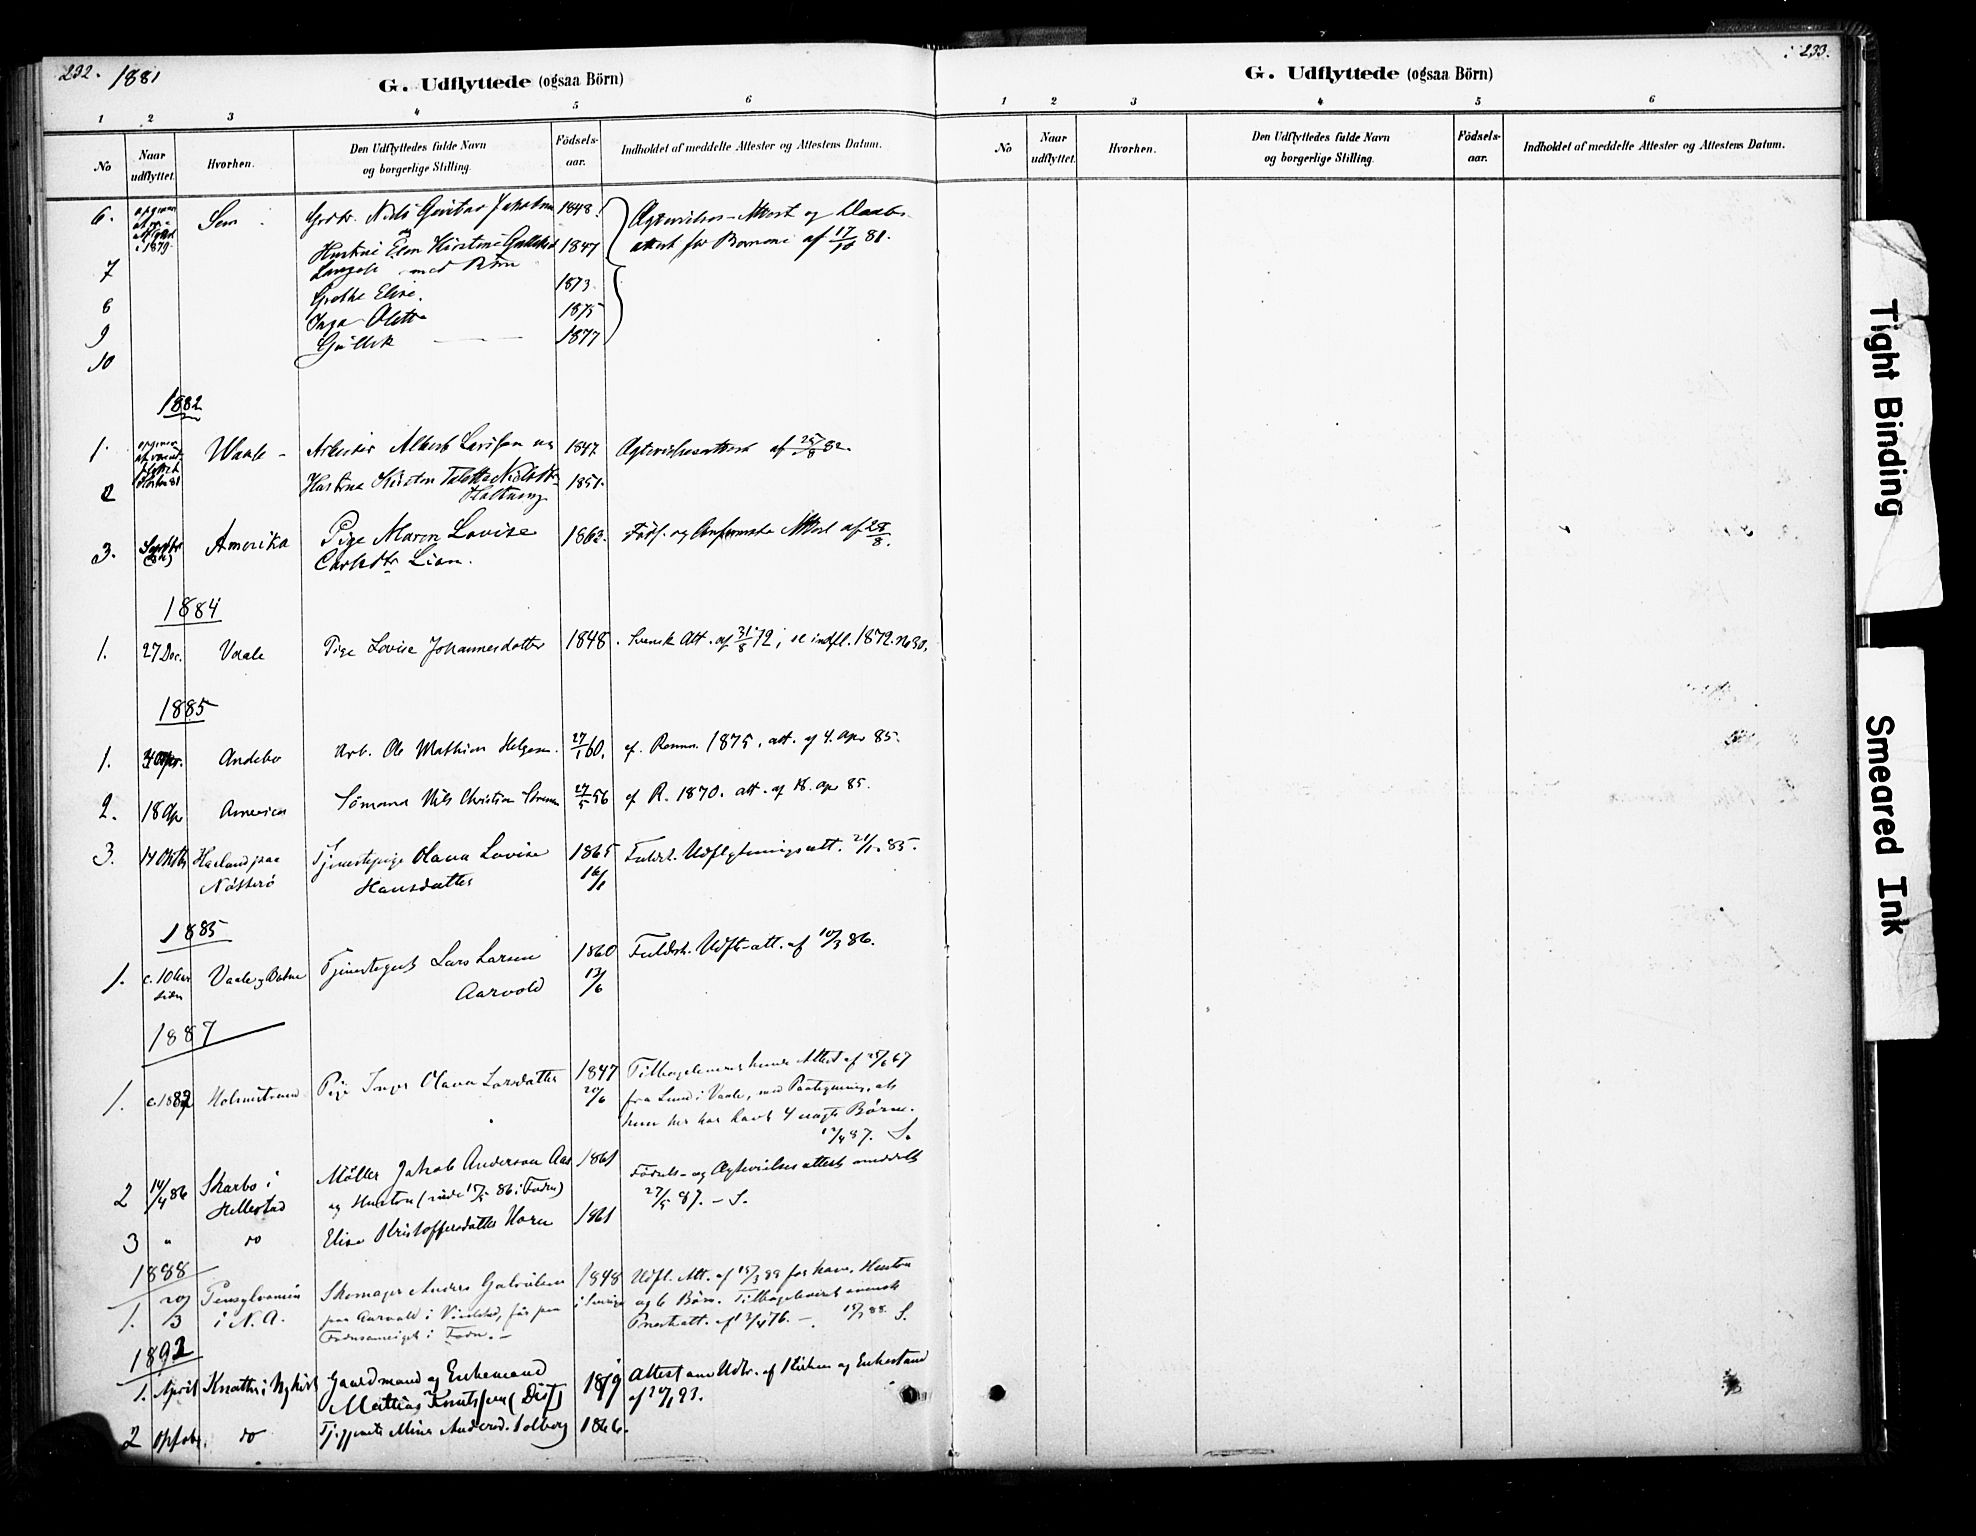 232. 1881
G. Udflyttede (ogsaa Börn)
1 2 3 4 5 6
No
Naar udflyttet.
Hvorhen.
Den Udflyttedes fulde Navn og borgerlige Stilling.
Födsels-aar.
Indholdet af meddelte Attester og Attestens Datum.
6. Sem Nils Gustav 1848.
Hustru Elen Kirstine 1847
7 med Börn
8 Grethe Elise. 1873
9 Inga Olette 1875
10 Gullik 1877
Ægtevielses-Attest og Daabs-
attest for Bornene af 17/10 81.
1882
1. Waale - Arbeider Albert og 1847 Ægtevielsesattest af 25/8 82
2 Hustru Kirsten 1851.
3. Amerika Pige Maren Lovise 1862. Föds. og Attest af 28/8.
Lian.
1884
1. 27 Dec. Vaale Pige Lovise Johannesdatter 1848. Svensk Att. af 31/8 72, se indfl. 1872. No 30.
1885
1. Apr. Andebo Arb. Ole Mathias Helgesen. 27/1 60. cf. Ramn. 1875. att. af 4. Apr 85.
2. 18 Apr America Sömand Nils Christian 27/5 56 cf R. 1870. att. af 18. Apr 85.
3. 14 Oktbr Haaland paa Tjenestepige Olava Lovise 1865 Fuldst. Udflytningsatt. 21/1. 85.
Nötterö Hansdatter 16/1
1885
1. c. 10 Aar Vaale og Botne Tjenestegut Lars Larsen 1860 Fuldst. Udfl.-att. af 10/3 86.
siden Aarvold 13/6
1887
1. c. 1882 Holmestrand Pige Inger Olava Larsdatter 1847 Tilbageleveres hende Attest af 25/6 67
20/6 fra Lund i Vaale, med Paategning, at
hun her har havt 4 uægte Börn.
12/4 87. S.
2 14/4 86 Skarbo i Möller Jakob Andersen Aas 1861 Födsels- og Ægtevielsesattest meddelt
Hillestad og Hustru (viede 15/5 86 i Fodn) 27/5 87. - S.
3 " do Elise Kristoffersdatter Horn 1861
1888
1. 20/3 Pensylvanien Skomager Anders Gabrielsen 1848 Udfl. Att. af 15/3 88 for ham, Hustru
i N. A. paa Aarvold i Vivelstad, för paa i Sverige og 6 Börn. Tilbageleveret svensk
i Fodn. - Prestatt. af 12/4 76. - 15/3 88. S.
1892
1. April Knatten i Nykirke Gaardmand og Enkemand 1819 Attest om Udtr. af Kirken og Enkestand
Mathias Knutssen (Diss) af 24/1 93.
2 do Mina Andersd. Solberg 1866.
233.
G. Udflyttede (ogsaa Börn)
1 2 3 4 5 6
No
Naar udflyttet.
Hvorhen.
Den Udflyttedes fulde Navn og borgerlige Stilling.
Födsels-aar.
Indholdet af meddelte Attester og Attestens Datum.
Tight Binding
Smeared Ink